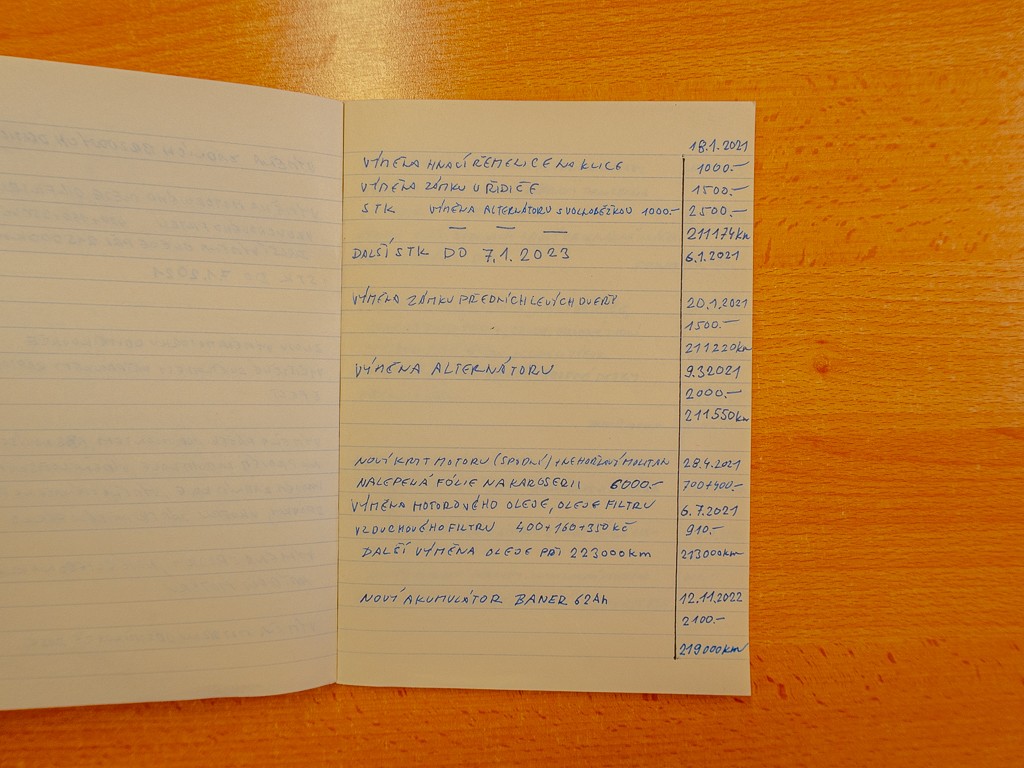 18.1.2021
VÝMĚNA HNACÍ ŘEMENICE NA KLICE 1000.-
VÝMĚNA ZÁMKU U ŘIDIČE 1500.-
STK VÝMĚNA ALTERNÁTORU S VOLNOBĚŽKOU 1000.- 2500.-
— — — 211174km
DALŠÍ STK DO 7.1.2023 6.1.2021
VÝMĚNA ZÁMKU PŘEDNÍCH LEVÝCH DVEŘÍ 20.1.2021
1500.-
211220km
VÝMĚNA ALTERNÁTORU 9.3.2021
2000.-
211550km
NOVÍ KRYT MOTORU (SPODNÍ) + NEHOŘLAVÍ MOLITAN 28.4.2021
NALEPENÁ FÓLIE NA KAROSERII 6000.- 700+400.-
VÝMĚNA MOTOROVÉHO OLEJE, OLEJE FILTRU 6.7.2021
VZDUCHOVÉHO FILTRU 400+160+350 KČ 910.-
DALŠÍ VÝMĚNA OLEJE PŘI 223000km 213000km
NOVÍ AKUMULÁTOR BANER 62Ah 12.11.2022
2100.-
219000km